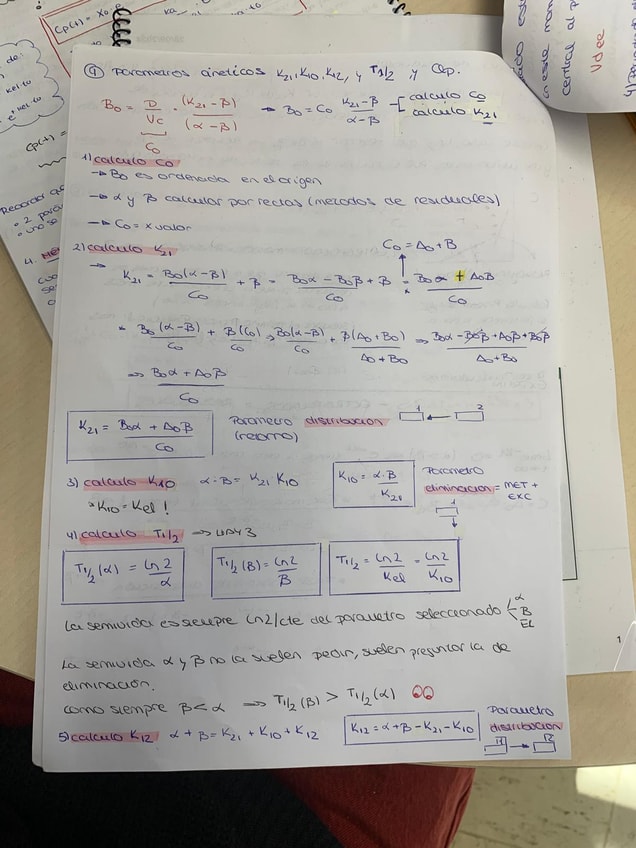 ④ Parametros cineticos K21, K10, K12, y T1/2 y Qp.
B0 = D/Vc · (K21-β)/(α-β) → B0 = C0 K21-β/α-β calculo C0
C0 calculo K21
1) calculo C0
→ B0 es ordenada en el origen
→ α y β calcular por rectas (metodos de residuales)
→ C0 = x valor
2) calculo K21
C0 = A0 + B
→ K21 = B0(α-β)/C0 + β = B0α - B0β/C0 + β = B0α + A0β/C0
* B0(α-β)/C0 + β(C0)/C0 → B0(α-β)/C0 + β(A0+B0)/A0+B0 ⇒ B0α-B0β+A0β+B0β/A0+B0
⇒ B0α + A0β/C0
K21 = B0α + A0β/C0 Parametro distribucion 1 ← 2
(retorno)
3) calculo K10 α·β = K21 K10 K10 = α·β/K21 Parametro
eliminacion = MET + EXC
* K10 = Kel !
1
4) calculo T1/2 → HAY 3
T1/2 (α) = Ln2/α T1/2 (β) = Ln2/β T1/2 = Ln2/Kel = Ln2/K10
La semivida es siempre Ln2/cte del parametro seleccionado α β EL
La semivida α y β no la suelen pedir, suelen preguntar la de
eliminación.
como siempre β < α ⇒ T1/2 (β) > T1/2 (α)
5) calculo K12 α + β = K21 + K10 + K12 K12 = α+β-K21-K10 Parametro
distribucion
1 → 2
Cp(t) = X0
Cp(t) =
Recordar
4.
central al p
Vdee
1